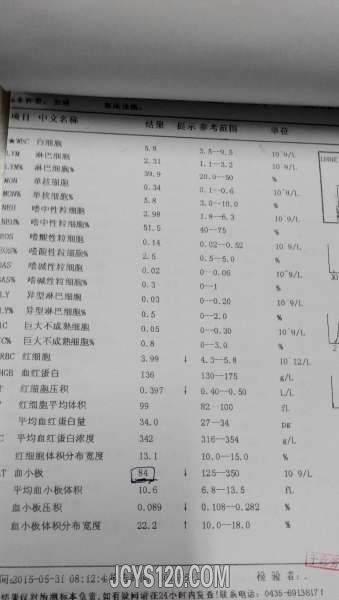 项目 中文名称 结果 提示 参考范围 单位
★WBC 白细胞 5.8 3.5--9.5 10^9/L
LYM 淋巴细胞 2.31 1.1--3.2 10^9/L
LYM% 淋巴细胞% 39.9 20.0--50 %
MON 单核细胞 0.34 0.1--0.6 10^9/L
MON% 单核细胞% 5.8 3.0--10.0 %
NEU 嗜中性粒细胞 2.98 1.8--6.3 10^9/L
NEU% 嗜中性粒细胞% 51.5 40--75 %
EOS 嗜酸性粒细胞 0.14 0.02--0.52 10^9/L
EOS% 嗜酸性粒细胞% 2.5 0.5--5.0 %
BAS 嗜碱性粒细胞 0.02 0--0.06 10^9/L
BAS% 嗜碱性粒细胞% 0.3 0--1 %
LY 异型淋巴细胞 0.03 0--0.20 10^9/L
LY% 异型淋巴细胞% 0.5 0--2.0 %
IC 巨大不成熟细胞 0.05 0--0.30 10^9/L
IC% 巨大不成熟细胞% 0.8 0--3.0 %
RBC 红细胞 3.99 ↓ 4.3--5.8 10^12/L
HGB 血红蛋白 136 130--175 g/L
T 红细胞压积 0.397 ↓ 0.40--0.50 L/L
红细胞平均体积 99 82--100 fL
平均血红蛋白量 34.0 27--34 pg
C 平均血红蛋白浓度 342 316--354 g/L
红细胞体积分布宽度 13.1 10.0--15.0 %
LT 血小板 84 ↓ 125--350 10^9/L
平均血小板体积 10.6 6.8--13.5 fL
血小板压积 0.089 ↓ 0.108--0.282 %
血小板体积分布宽度 22.2 ↑ 10.0--18.0 %
间:2015-05-31 08:12:4 检验者:
JCYS120.COM
结果仅对所测标本负责,如有疑问请在24小时内复检!联系电话:0435-6913817